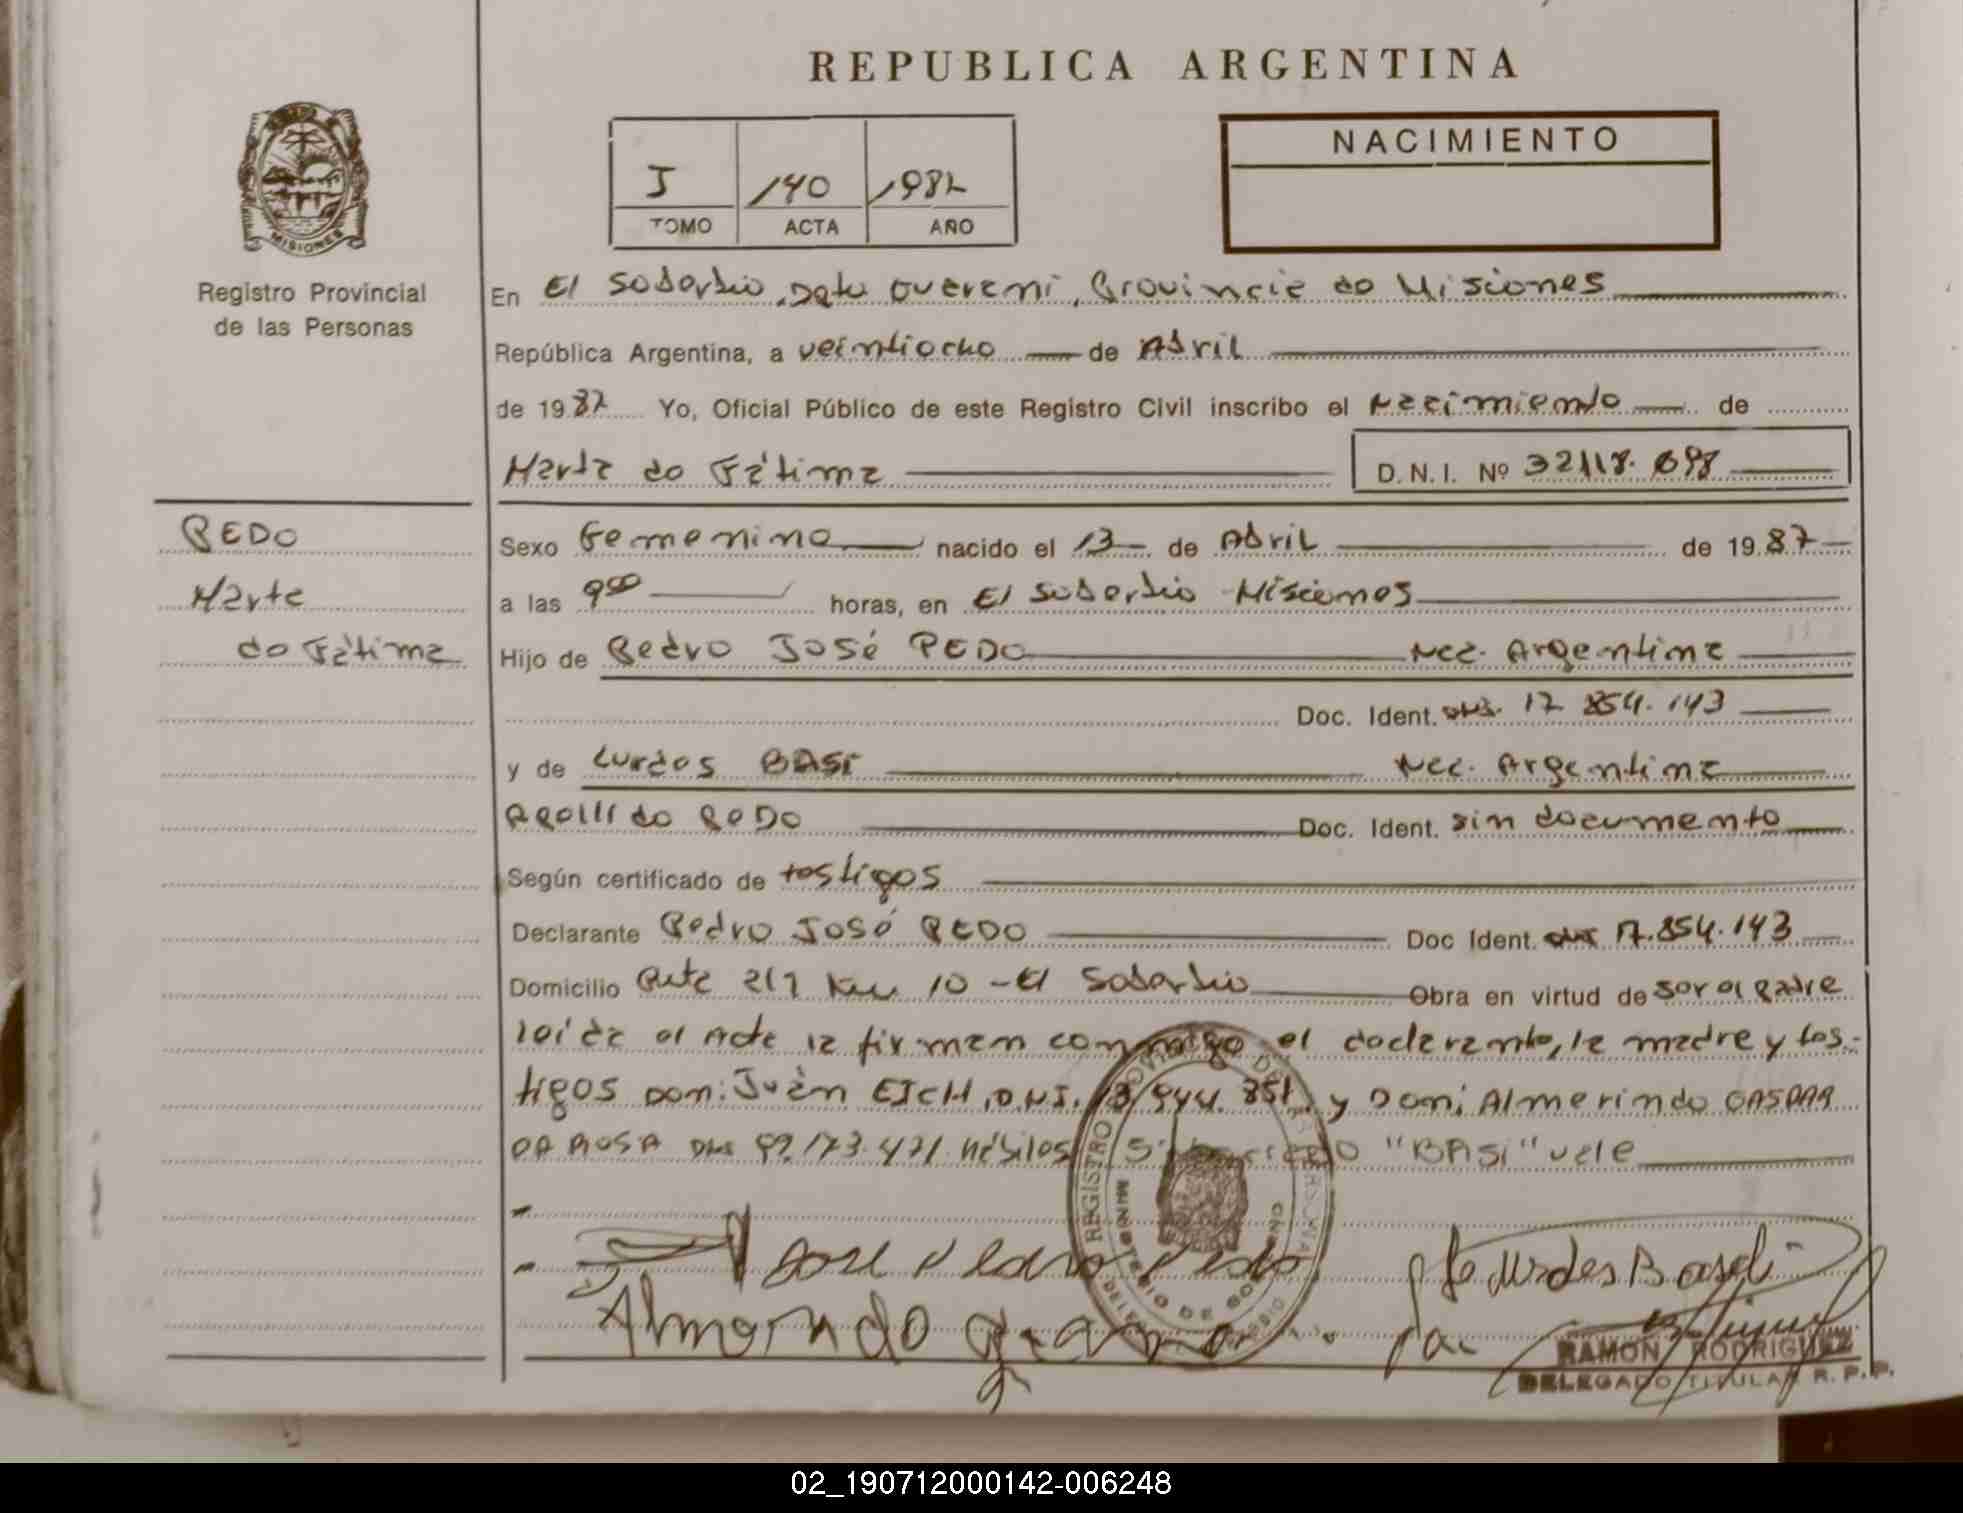 REPUBLICA ARGENTINA
NACIMIENTO
I 140 1987
TOMO ACTA AÑO
MISIONES
Registro Provincial
de las Personas
En El Soberbio, Dpto Guarani, Provincia de Misiones
República Argentina, a veintiocho de Abril
de 1987 Yo, Oficial Público de este Registro Civil inscribo el Nacimiento de
Marta de Fátima D.N.I. Nº 32118.698
PEDO
Marta
de Fátima
Sexo Femenino nacido el 13 de Abril de 1987
a las 9 00 horas, en El Soberbio Misiones
Hijo de Pedro José PEDO Nac. Argentina
Doc. Ident. DNI. 17 854.143
y de Lurdes BASI Nac. Argentina
Apelli do PEDO Doc. Ident. sin documento
Según certificado de testigos
Declarante Pedro José PEDO Doc Ident. DNI 17.854.143
Domicilio Ruta 217 Km 10 - El Soberbio Obra en virtud de ser el padre
leída el Acta la firman conmigo el declarante, la madre y tes-
tigos Don: Juán EICH, D.N.I. 13/944.851, y Don: Almerindo GASPAR
DA ROSA DNI 92.173.471 hábiles "BASI" vale
REGISTRO PROVINCIAL DE LAS PERSONAS
MINISTERIO DE GOBIERNO
José Pedro Pedo
Lurdes Basi
RAMON RODRIGUEZ
DELEGADO TITULAR R. P. P.
02_190712000142-006248